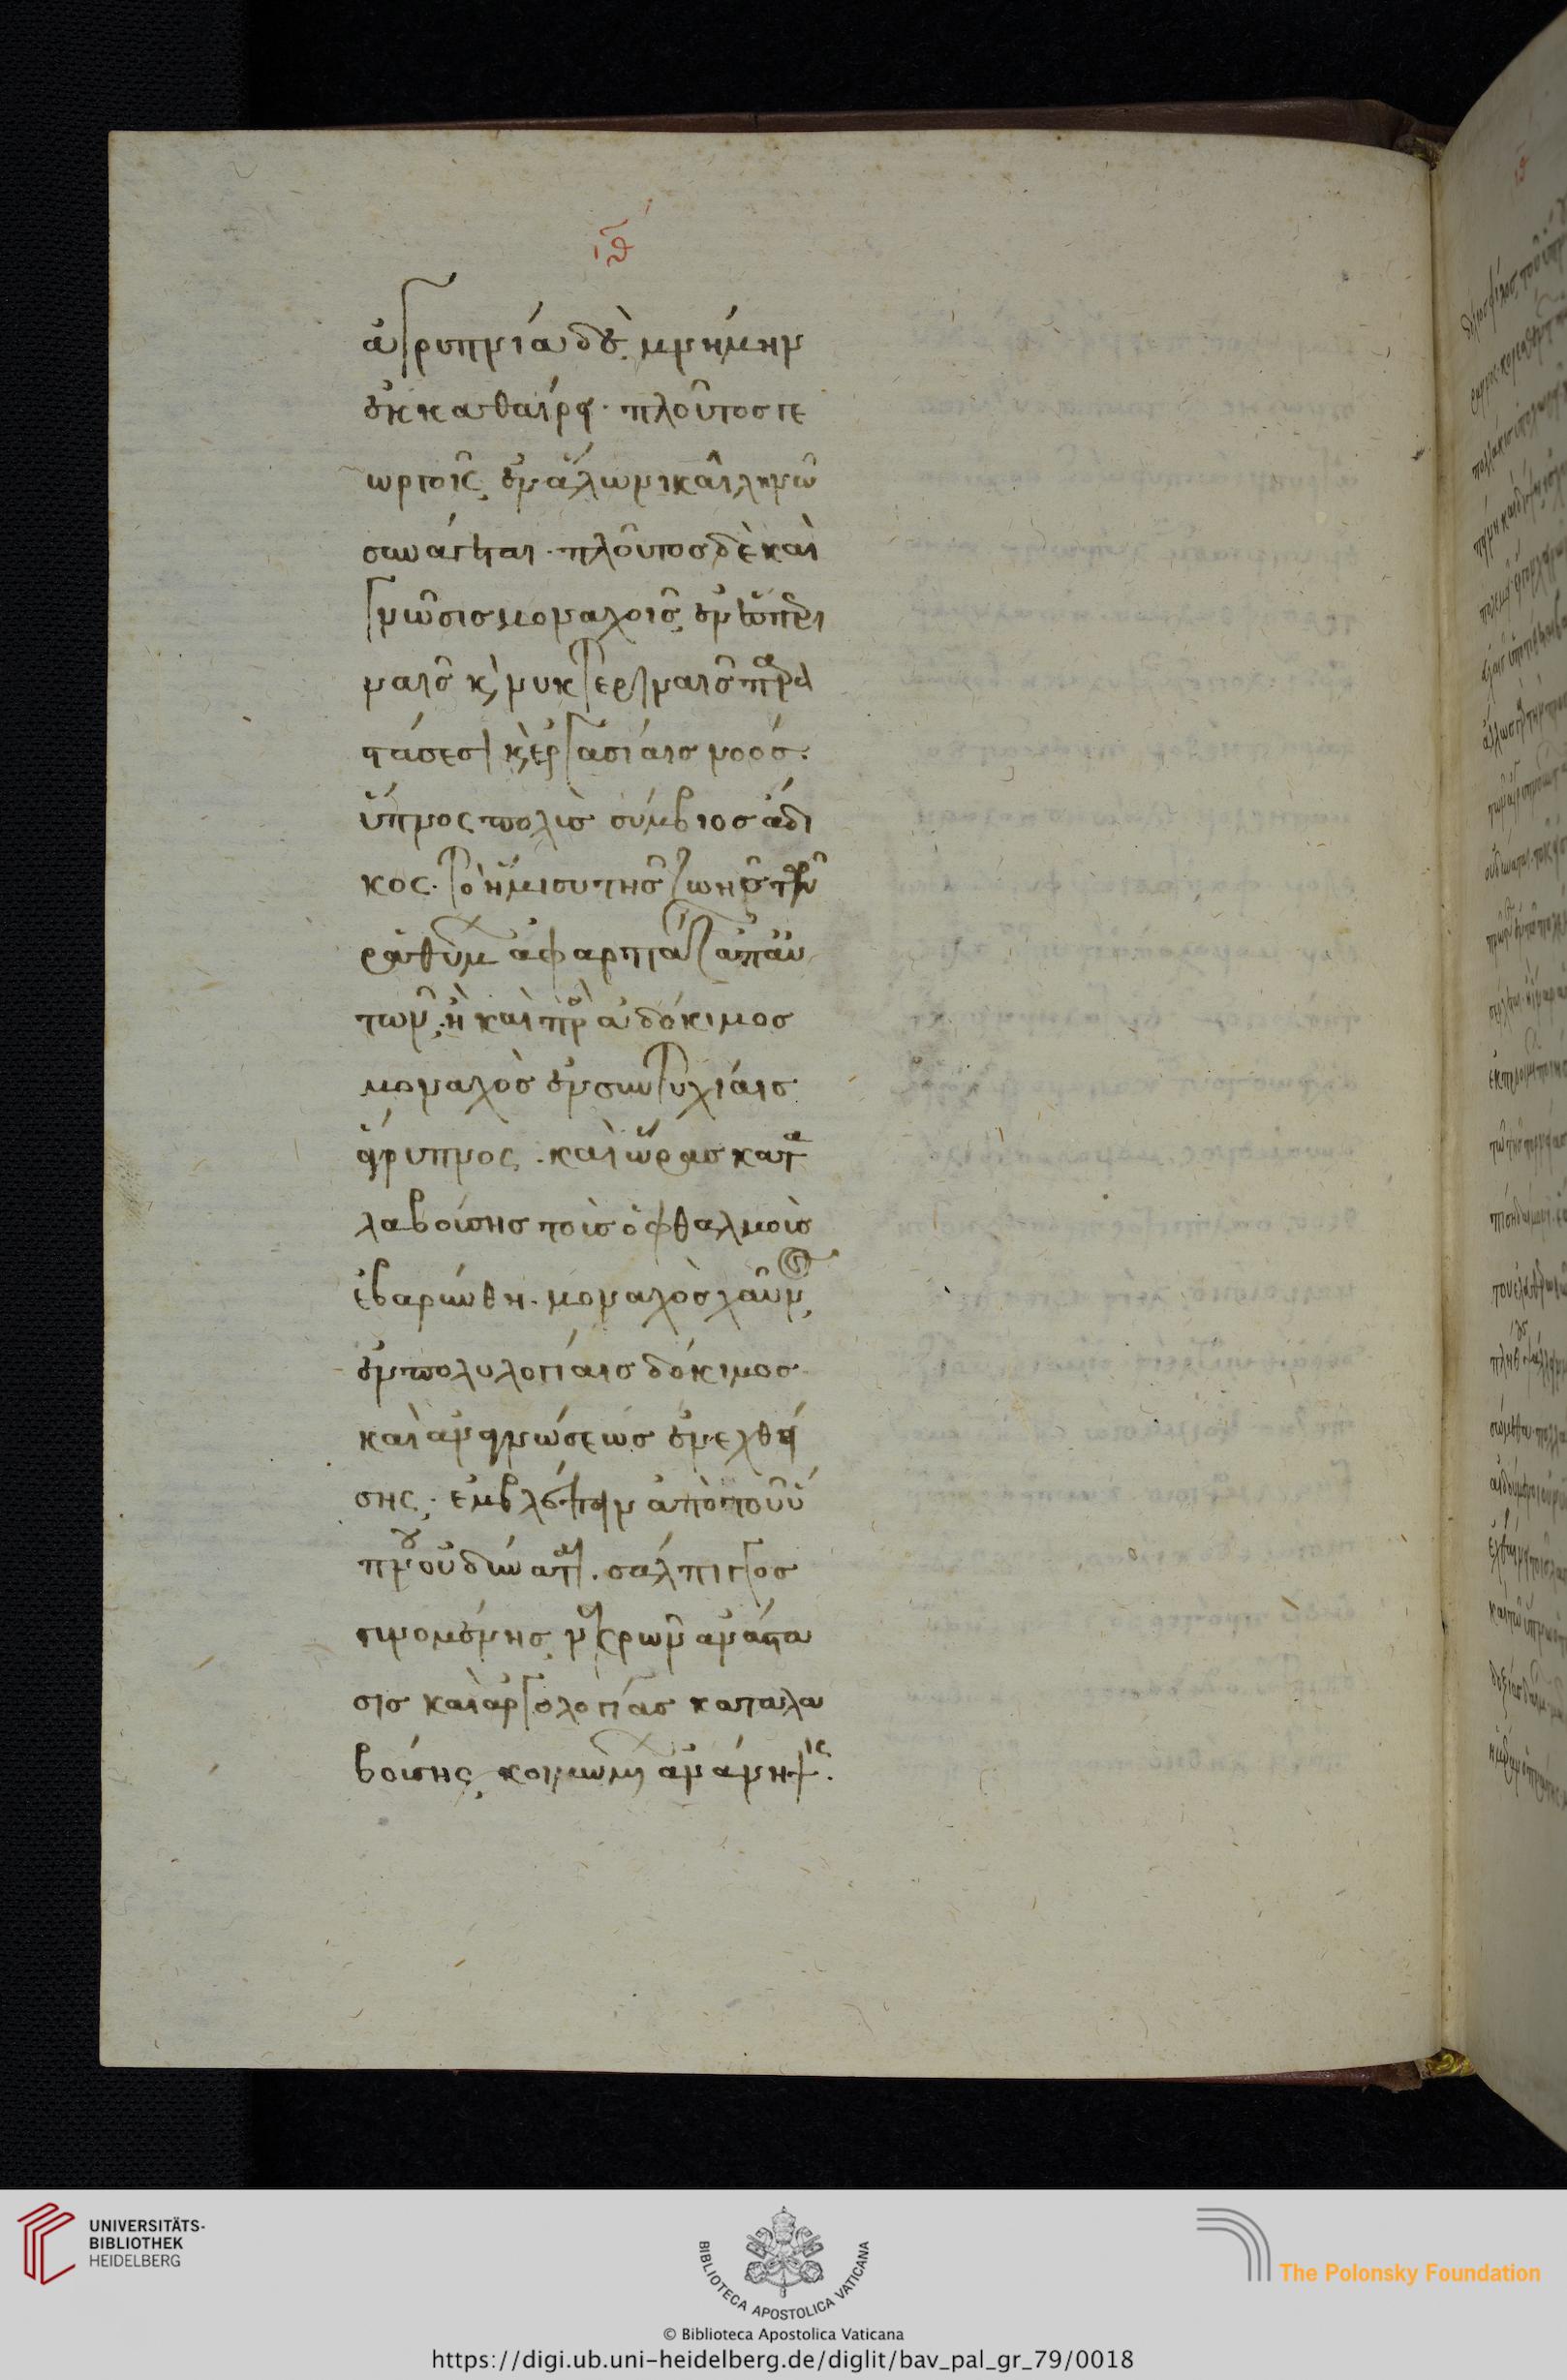 ιθ
ἀγρυπνία δὲ μνήμην
ἐκκαθαίρει· πλοῦτος γε
ωργοῖς ἐν ἅλωνι καὶ ληνῶ
συνάγεται· πλοῦτος δὲ καὶ
γνῶσις μοναχοῖς ἐν ἑσπερι
ναῖς κ(αὶ) νυκτεριναῖς παρα
στάσεσι κ(αὶ) ἐργασίαις νοός·
ὕπνος πολὺς σύμβιος ἄδι
κος· τὸ ἥμισυ τῆς ζωῆς τοῦ
ραθύμ ἀφαρπάζ
των· ἢ καὶ ἀδόκιμος
μοναχὸς ἐν συντυχίαις
ἄγρυπνος· καὶ ὥρας κατα
λαβούσης τοῖς ὀφθαλμοῖς
ἐβαρύνθη· μοναχὸς χαῦν(ος)
ἐν πολυλογίαις δόκιμος·
καὶ ἀναγνώσεως ἐνεχθεί
σης· ἐμβλέπειν ἀπὸ τοῦ ὕ
πνου οὐ δύναται· σάλπιγγος
γινομένης νεκρῶν ἀνάστα
σις καὶ ἀργολογίας καταλα
βούσης κοιμωμ ἀνάνηψις·
UNIVERSITÄTS-
BIBLIOTHEK
HEIDELBERG
BIBLIOTECA APOSTOLICA VATICANA
The Polonsky Foundation
© Biblioteca Apostolica Vaticana
https://digi.ub.uni-heidelberg.de/diglit/bav_pal_gr_79/0018